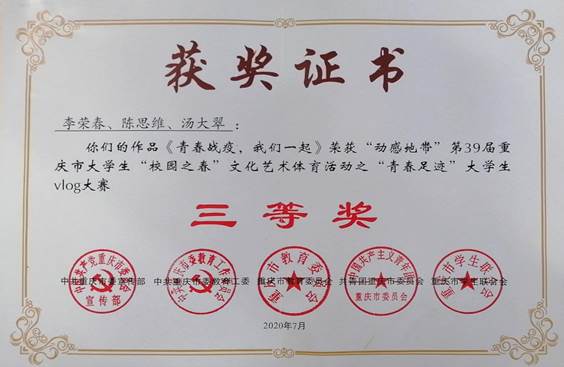 获奖证书
李荣春、陈思维、汤大翠：
你们的作品《青春战疫，我们一起》荣获“动感地带”第39届重
庆市大学生“校园之春”文化艺术体育活动之“青春足迹”大学生
vlog大赛
三等奖
中共重庆市委宣传部 中共重庆市委教育工委 重庆市教育委员会 共青团重庆市委员会 重庆市学生联合会
宣传部
重庆市委员会
2020年7月